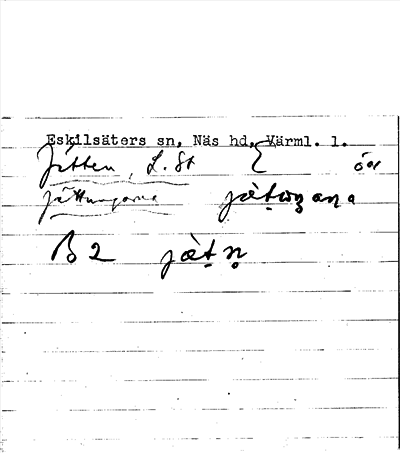 Eskilsäters sn, Näs hd, Värml. l.
Jätten, L. St { öar
Jättungarna jætωŋaṇa
B 2 jæ̀tṇ